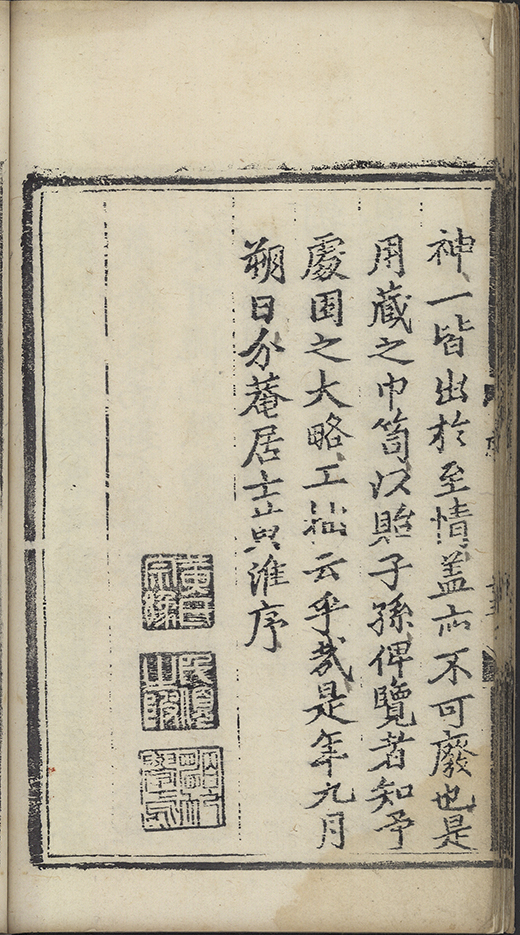 神一皆出於至情盖亦不可廢也是
用藏之巾笥以貽子孫俾覽者知予
處困之大略工拙云乎哉是年九月
朔日介菴居士黄淮序